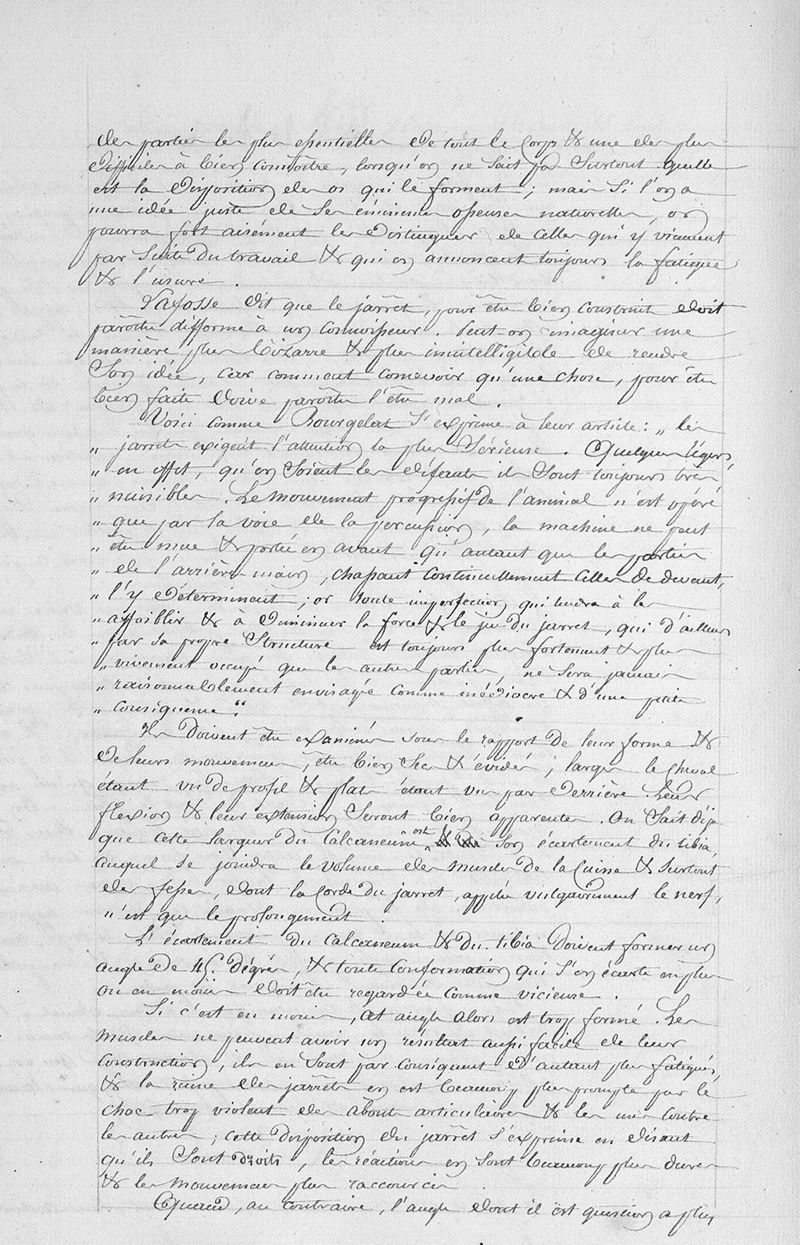 des parties les plus essentielles de tout le corps & une des plus
difficiles à bien connoitre, lorsqu'on ne sait pas surtout quelle
est la disposition des os qui le forment ; mais si l'on a
une idée juste de ses éminences osseuses naturelles, on
pourra fort aisément les distinguer de celles qui y viennent
par suite du travail & qui en annoncent toujours la fatigue
& l'usure.
Lafosse dit que le jarret, pour être bien construit doit
paroître difforme à un connoisseur. Peut on imaginer une
manière plus bizarre & plus inintelligible de rendre
son idée, car comment concevoir qu'une chose, pour être
bien faite doive paroître l'être mal.
Voici comme Bourgelat s'exprime à leur article : „ les
„ jarrets exigent l'attention la plus sérieuse. Quelques légers,
„ en effet, qu'en soient les défauts ils sont toujours très
„ nuisibles. Le mouvement progressif de l'animal n'est opéré
„ que par la voie de la percussion, la machine ne peut
„ être mue & portée en avant qu'autant que les parties
„ de l'arrière main, chassant continuellement celles de devant,
„ l'y déterminent ; or toute imperfection qui tendra à les
„ affoiblir & à diminuer la force & le jeu du jarret, qui d'ailleurs
„ par sa propre structure est toujours plus fortement & plus
„ vivement occupé que les autres parties ne sera jamais
„ raisonnablement envisagée comme médiocre & d'une petite
„ conséquence."
Ils doivent être examinés sous le rapport de leur forme &
de leurs mouvemens, être bien secs & évidés ; larges le cheval
étant vu de profil & plats étant vu par derrière. Leur
flexion & leur extension seront bien apparentes. On sait déja
que cette largeur du calcaneum est son écartement du tibia,
auquel se joindra le volume des muscles de la cuisse & surtout
des fesses, dont la corde du jarret, appelée vulgairement le nerf,
n'est que le prolongement.
L'écartement du calcaneum & du tibia doivent former un
angle de 45. dégrés, & toute conformation qui s'en écarte en plus
ou en moins doit être regardée comme vicieuse.
Si c'est en moins, cet angle alors est trop fermé. Les
muscles ne peuvent avoir un résultat aussi facile de leur
construction, ils en sont par conséquent d'autant plus fatigués,
& la ruine des jarrets en est beaucoup plus prompte par le
choc trop violent des abouts articulaires & les uns contre
les autres ; cette disposition du jarret s'exprime en disant
qu'ils sont droits, les réactions en sont beaucoup plus dures
& les mouvemens plus raccourcis.
Quand, au contraire, l'angle dont il est question a plus